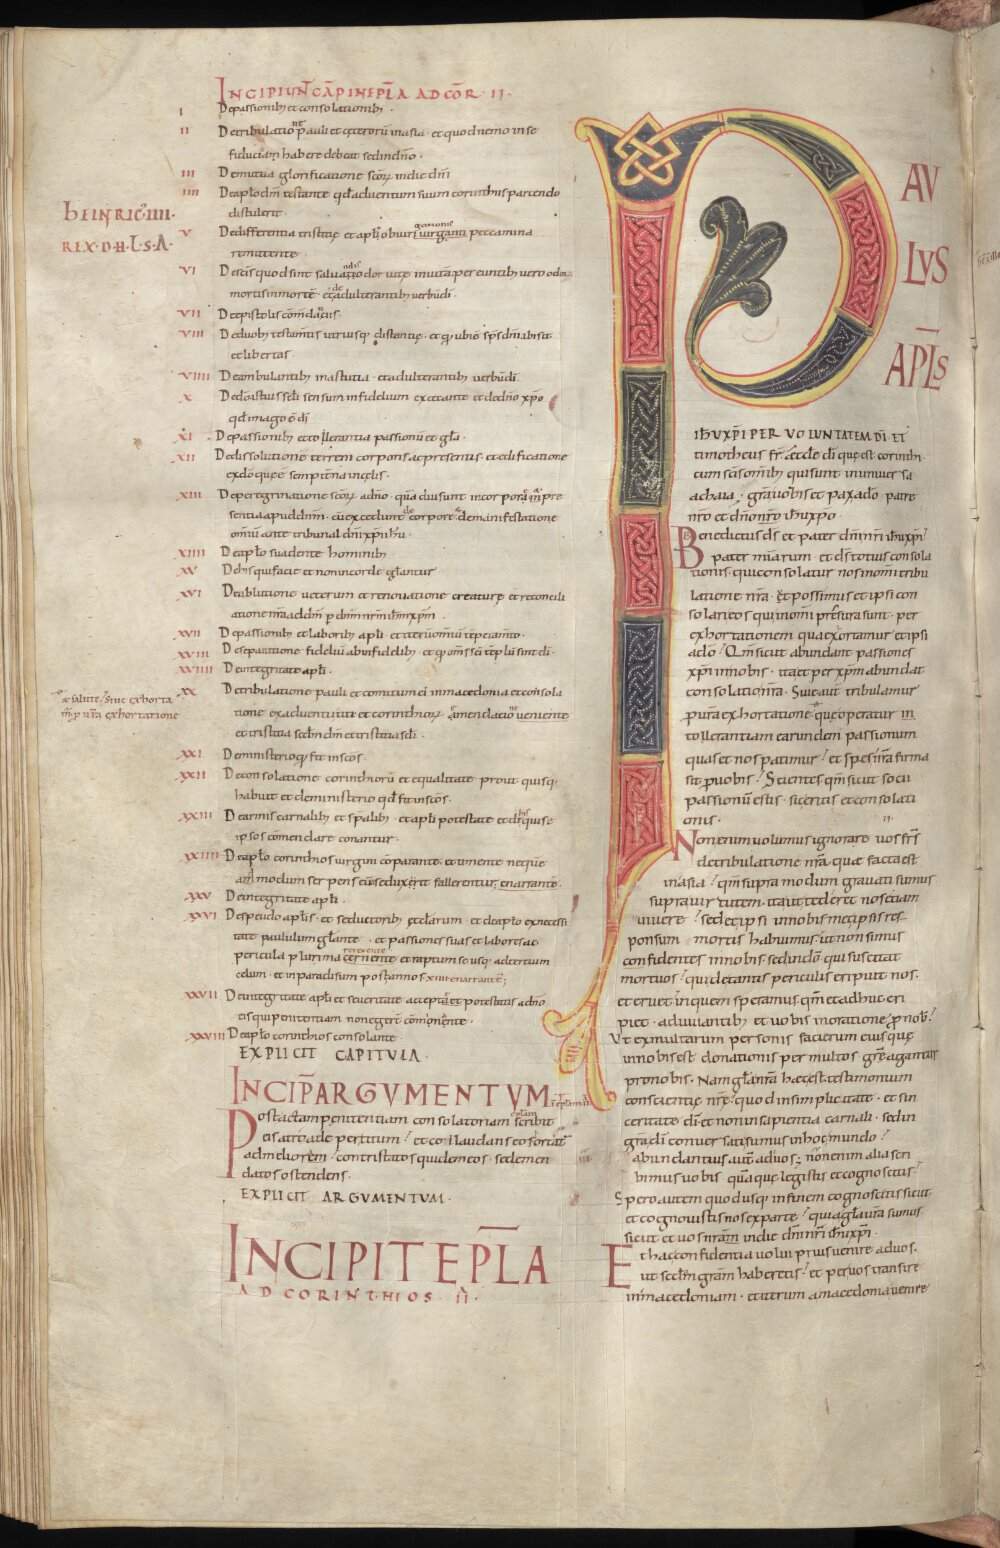 INCIPIUNT CAP IN EPLA AD COR · II ·
I Depassionib; et consolationib; ·
II Detribulatione pauli et ceterorū inasia · et quod nemo in se
fiduciam habere debeat sed in dn̄o ·
III Demutua glorificatione scōrꝝ indie dn̄i
IIII Deaplo dm̄ testante qđ aduentum suum corinthiis parcendo
distulerit ·
HEINRIC' IIII ·
REX · D · H · L · S · A ·
V Dedifferentia tristitię et apli peccamina
remittente ·
VI
mortis in mortē · et de adulterantib; uerbū dī ·
VII Deepistolis
VIII Deduob; testamtis utriusq; distantię · et qr̄ ubi ē sp̄s dn̄i ibi sit
et libertas ·
VIIII Deambulantib; inastutia · et adulterantib; uerbū dī ·
X Dedō istius sc̄li sensum infidelium excecante et dedn̄o xp̄o
qđ imago ē dī
XI Depassionib; et tollerantia passionū et gl̄a ·
XII Dedissolutione terreni corporis ac presentis · et edificatione
exdō quęē sempitna incęlis ·
XIII Deperegrinatione scōrꝝ adn̄o · quādiu sunt incorpora
sentia apud dn̄m · cū excedunt de corpore · demanifestatione
omniū ante tribunal dn̄i xp̄i ih̄u ·
XIIII Deaplo suadente hominib;
XV Dehis qui facie et non in corde glantur
XVI Deablutione ueterum et renouatione creaturę et reconcili
atione nr̄a ad dm̄ p dn̄m nr̄m ih̄m xp̄m ·
XVII Depassionib; et laborib; apli ·
XVIII Deseparatione fidelium ab infidelib; · et qr̄ om̄s sc̄i templū sint dī ·
XVIIII Deintegritate apli ·
XX Detribulatione pauli et comitum ei inmacedonia et consola
tione ex aduentu titi et corinthiorꝝ · ueniente
et tristitia scdm dm̄ et tristitia scli ·
& salute · siue exhorta
exhortatione
XXI Deministerio qđ fit in scōs ·
XXII Deconsolatione corinthiorū et equalitate prout quisq;
habuit et deministerio qđ fit in scōs ·
XXIII Dearmis carnalib; et sp̄alib; · et apli potestate et
ipsos comendare conantur ·
XXIIII Deaplo corinthios uirgini comparante · et timente ne quę
admodum serpens euā seduxerit fallerentur enarrante ·
XXV Deintegritate apli ·
XXVI Depseudo aplis · et seductorib; ęcclarum · et deaplo exnecessi
tate paululum glante · et passiones suas et labores ac
pericula plurima et raptum se usq; adtertium
celum · et inparadisum post annos XIIII enarrante ;
XXVII Deintegritate apli et seueritate accepta et potestatis adn̄o
eis qui penitentiam non egerī ·
XXVIII Deaplo corinthios consolante ·
EXPLICIT CAPITULA ·
INCIP ARGUMENTUM
Post actam penitentiam consolatoriam scribit
eis atroade per titum · et collaudans eos ortat
admeliorem · contristatos quidem eos · sed emen
datos ostendens ·
EXPLICIT ARGUMENTUM ·
INCIPIT EPLA
AD CORINTHIOS · II ·
PAV
LVS
APLS
IHU XPI PER VOLUNTATEM DI · ET
timotheus fr̄ · ęccłę dī quę est corinthi ·
cum scīs omnib; qui sunt in uniuersa
achaia · gr̄a uobis et pax adō patre
nr̄o et dn̄o nr̄o ih̄u xp̄o ·
Benedictus ds̄ et pater dn̄i nr̄i ih̄u xp̄i ·
pater mīarum · et ds̄ totius consola
tionis · qui consolatur nos in omni tribu
latione nr̄a · et possimus et ipsi con
solari eos qui in omni pressura sunt · per
exhortationem qua exortamur et ipsi
adō · Qm̄ sicut abundant passiones
xp̄i in nobis · ita et per xp̄m abundat
consolatio nr̄a · Siue aut tribulamur
p ur̄a exhortatione · quę operatur in
tollerantiam earundem passionum
quas et nos patimur · et spes nr̄a firma
sit p uobis · Scientes qm̄ sicut socii
passionū estis · sic eritis et consolati
onis · II ·
Non enim uolumus ignorare uos frs̄
detribulatione nr̄a quae facta est
inasia · qm̄ supra modum grauati sumus
supra uirtutem · ita ut tederet nos etiam
uiuere · sed et ipsi in nobis metipsis res
ponsum mortis habuimus · ut non simus
confidentes in nobis · sed indō qui suscitat
mortuos · qui detantis periculis eripuit nos ·
et eruet · in quem speramus qm̄ et adhuc eri
piet · adiuuantib; et uobis inoratione p nob ·
Ut ex multarum personis facierum eius quę
in nobis est donationis per multos gr̄ę agantur
pro nobis · Nam gla nr̄a hęc est · testimonium
conscientię nr̄ę · quod insimplicitate · et sin
ceritate dī · et non insapientia carnali · sed in
gr̄a dī conuersati sumus in hoc mundo ·
abundantius aut aduos · non enim alia scri
bimus uobis · quā quę legistis et cognoscitis ·
Spero autem quod usq; infinem cognoscetis sicut
et cognouistis nos exparte · quia gla ur̄a sumus
sicut et uos nr̄am indie dn̄i nr̄i ih̄u xp̄i ·
Et hac confidentia uolui prius uenire aduos ·
ut scdam gr̄am haberetis · et per uos transire
inmacedoniam · et iterum amacedonia uenire